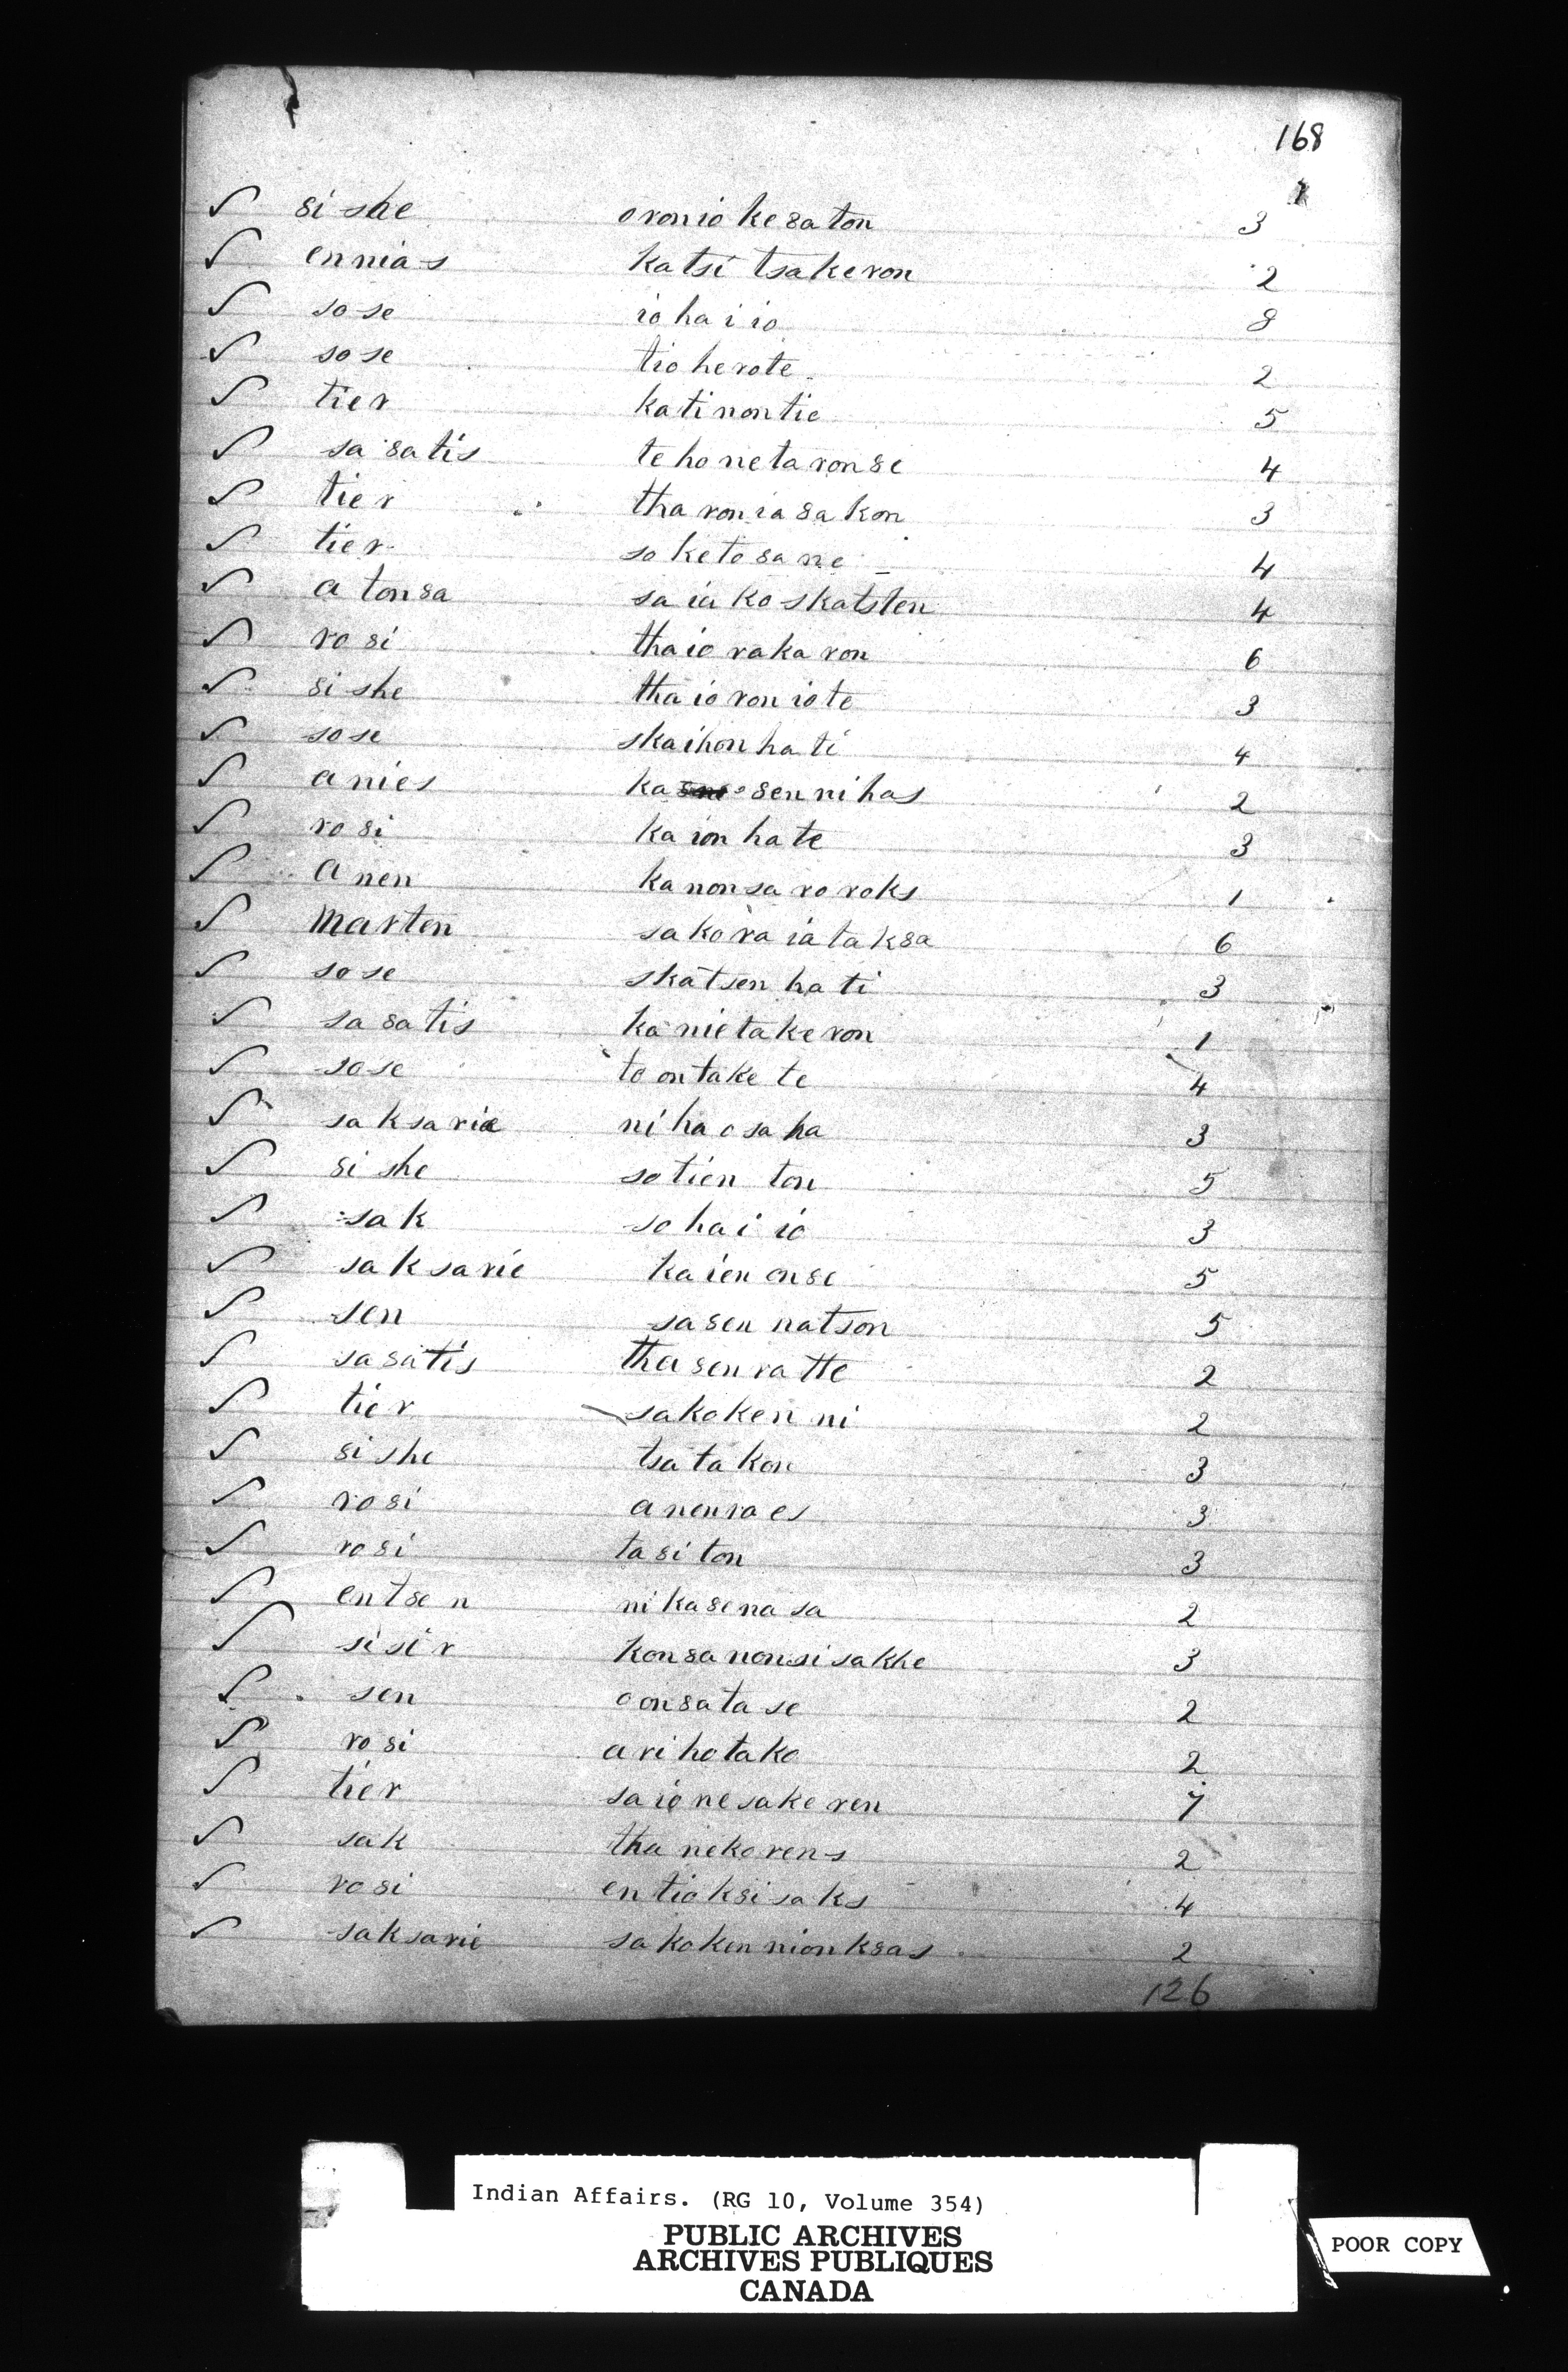 168
✓ 8i she oronio ke8a ton 3
✓ ennias katsi tsakeron 2
✓ sose io ha i io 8
✓ sose tio herote 2
✓ tier katinontie 5
✓ sa 8a tis te ho netaron8e 4
✓ tier tha ronia 8a kon 3
✓ tier so keto8a ne 4
✓ a ton8a sa ia ko skatsten 4
✓ ro 8i thaio raka ron 6
✓ 8i she tha io ron iote 3
✓ sose skaihon ha ti 4
✓ a nies ka 8en ni has 2
✓ ro 8i ka ion ha te 3
✓ a nen ka nonsa ro roks 1
✓ marten sa ko ra iatak8a 6
✓ sose skatsen ha ti 3
✓ sa 8a tis ka nietakeron 1
✓ sose to ontake te 4
✓ sa k sa rie ni ha o sa ha 3
✓ 8i she so tien ton 5
✓ sak so ha i io 3
✓ sa k sa rie ka ien on8e 5
✓ sen sa 8en natson 5
✓ sa 8a tis tha 8en ra tte 2
✓ tier sakoken ni 2
✓ 8i she tsa ta kon 3
✓ ro 8i a nenra es 3
✓ ro 8i ta 8i ton 3
✓ en t8e n ni ka8e na sa 2
✓ si si r kon8a nonsi sakhe 3
✓ sen o on8a ta se 2
✓ ro 8i a ri hotako 2
✓ tier sa io ne sake ren 7
✓ sak tha neko rens 2
✓ ro 8i en tiok8i saks 4
✓ saksarie sa ko ken nionk8as 2
126
Indian Affairs. (RG 10, Volume 354)
PUBLIC ARCHIVES
ARCHIVES PUBLIQUES
CANADA
POOR COPY